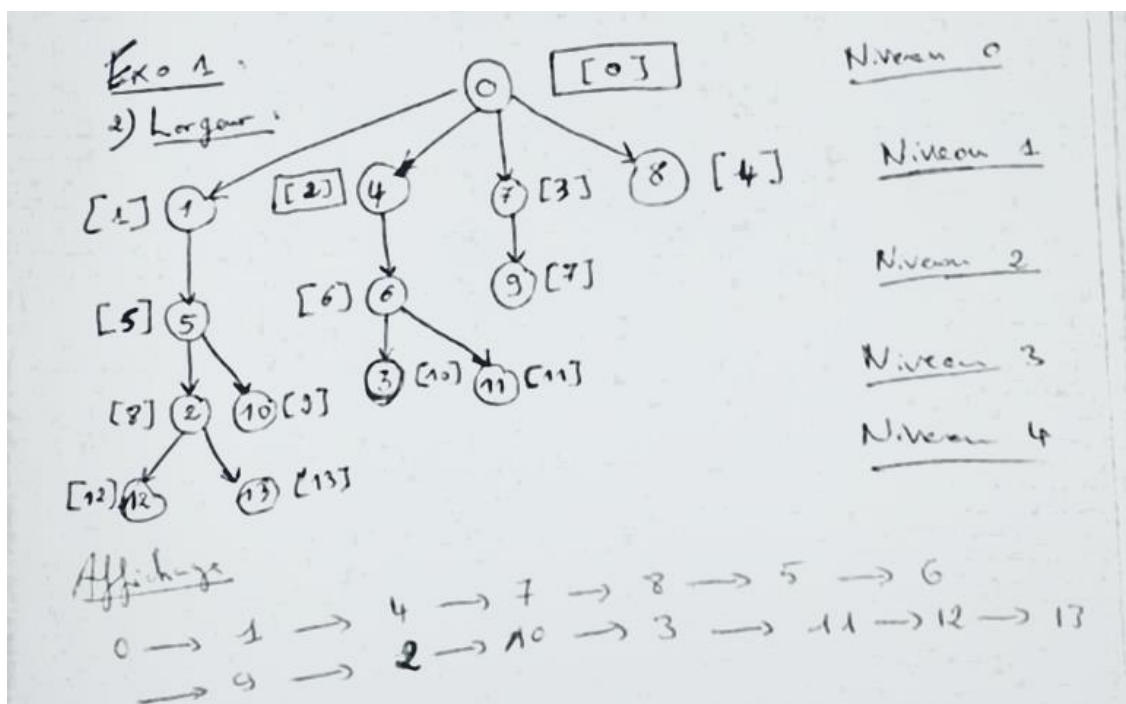 Exo 1.
2) Largeur :
0 [0] Niveau 0
[1] 1 [2] 4 7 [3] 8 [4] Niveau 1
[5] 5 [6] 6 9 [7] Niveau 2
[8] 2 10 [9] 3 [10] 11 [11] Niveau 3
[12] 12 13 [13] Niveau 4
Affichage
0 → 1 → 4 → 7 → 8 → 5 → 6
→ 9 → 2 → 10 → 3 → 11 → 12 → 13